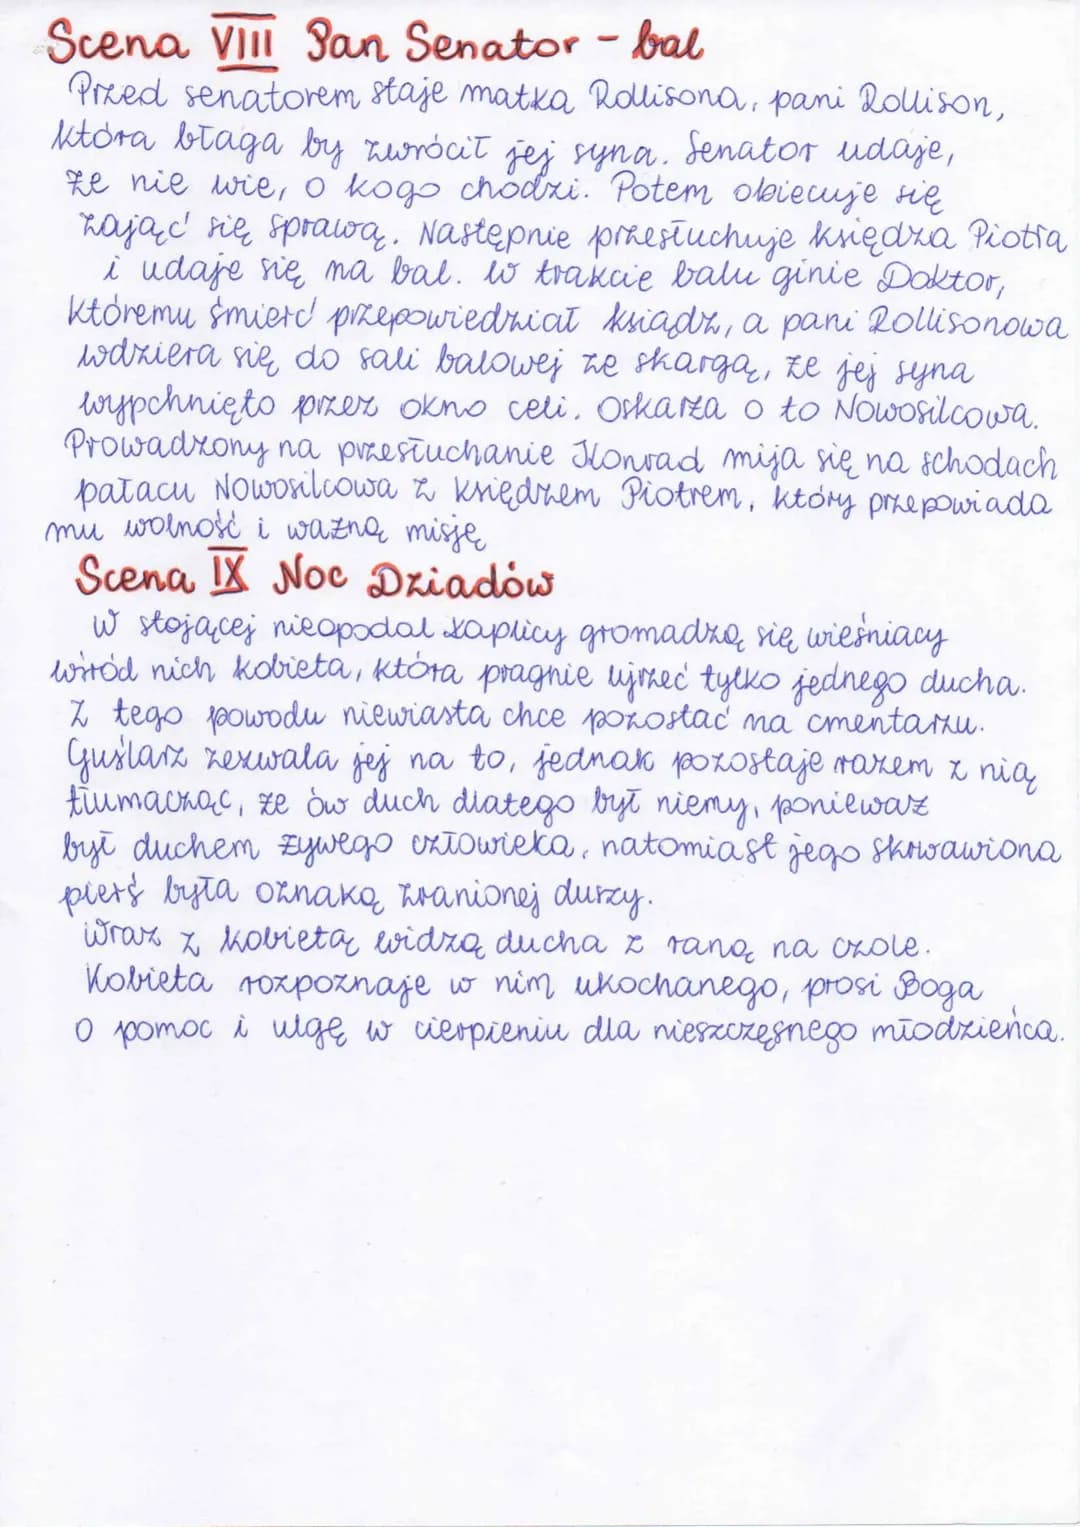 Scena VIII Pan Senator - bal
Przed senatorem staje matka Rollisona, pani Rollison,
która błaga by zwrócił jej syna. Senator udaje,
że nie wie, o kogo chodzi. Potem obiecuje się
zająć się sprawą. Następnie przesłuchuje księdza Piotra
i udaje się na bal. W trakcie balu ginie Doktor,
któremu śmierć przepowiedział ksiądz, a pani Rollisonowa
wdziera się do sali balowej ze skargą, że jej syna
wypchnięto przez okno celi. Oskarża o to Nowosilcowa.
Prowadzony na przesłuchanie Konrad mija się na schodach
pałacu Nowosilcowa z księdzem Piotrem, który przepowiada
mu wolność i ważną misję
Scena IX Noc Dziadów
W stojącej nieopodal kaplicy gromadzą się wieśniacy
wśród nich kobieta, która pragnie ujrzeć tylko jednego ducha.
Z tego powodu niewiasta chce pozostać na cmentarzu.
Guślarz zezwala jej na to, jednak pozostaje razem z nią
tłumacząc, że ów duch dlatego był niemy, ponieważ
był duchem żywego człowieka, natomiast jego skrwawiona
pierś była oznaką zranionej duszy.
Wraz z kobietą widzą ducha z raną na czole.
Kobieta rozpoznaje w nim ukochanego, prosi Boga
o pomoc i ulgę w cierpieniu dla nieszczęsnego młodzieńca.